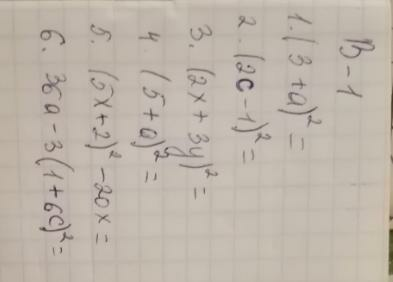 В-1
1. (3+a)² =
2. (2c-1)² =
3. (2x+3y)² =
4. (5+a)² =
5. (5x+2)² -20x =
6. 36a-3(1+6c)² =